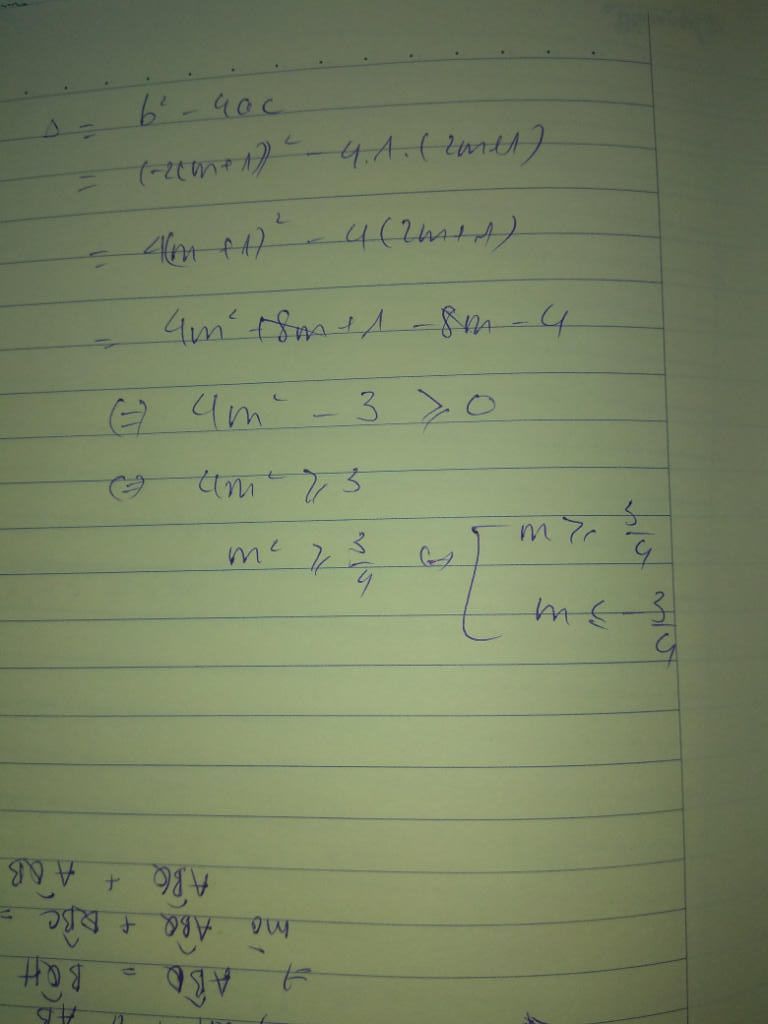 Δ = b² - 4ac
= (-2(m+1))² - 4.1.(2m+1)
= 4(m+1)² - 4(2m+1)
= 4m² + 8m + 1 - 8m - 4
(=) 4m² - 3 ⩾ 0
(=) 4m² ⩾ 3
m² ⩾ 3/4 ⇔ [ m ⩾ 3/4
m ≤ -3/4
AB
⇒ ABQ = BQH
mà ABQ + QBC =
ABQ + AQB